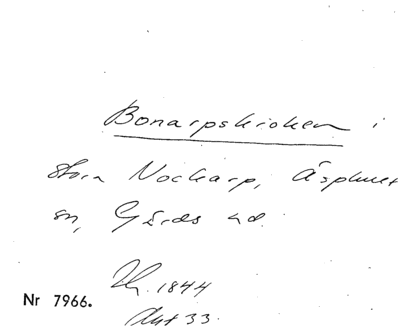 Bonarpskroken i
stora Nockarp, Äsphult
sn, Gärds hd.
1844
Akt 33.
Nr 7966.